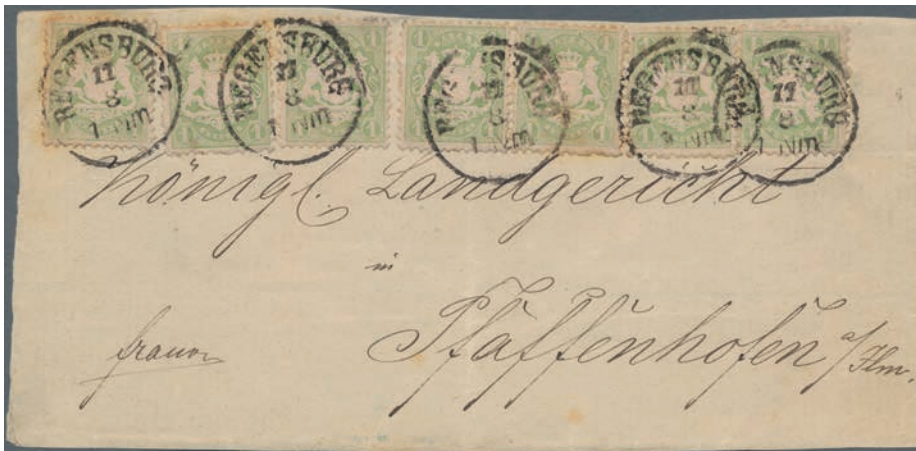 REGENSBURG
11
8
1 Nm
REGENSBURG
11
8
1 Nm
REGENSBURG
11
8
1 Nm
REGENSBURG
8
REGENSBURG
11
8
1 Nm
Königl. Landgericht
in
Pfaffenhofen a/Ilm.
franco